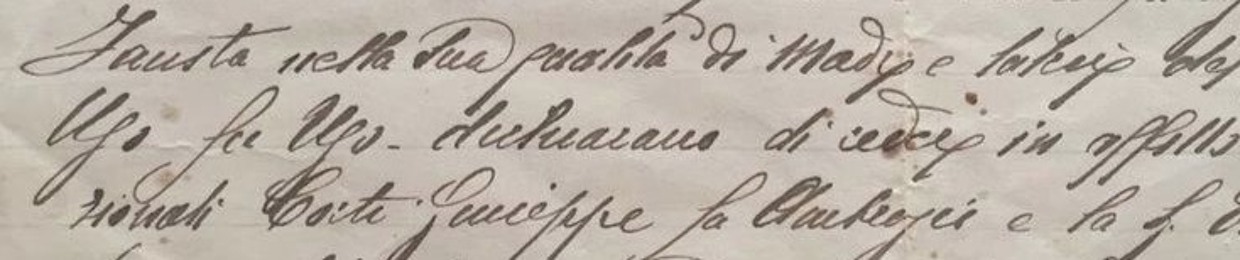 Fausta nella sua qualità di Madre e
Ugo fu Ugo - dichiarano di cedere in affitto
Corti Giuseppe fu Ambrogio e la S.